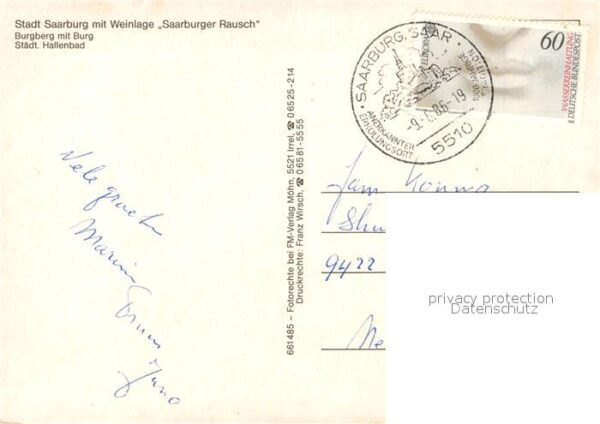 Stadt Saarburg mit Weinlage „Saarburger Rausch“
Burgberg mit Burg
Städt. Hallenbad
661485 – Fotorechte bei FM-Verlag Möhn, 5521 Irrel, ☎ 06525-214
Druckrechte: Franz Wirsch, ☎ 06581-5555
SAARBURG, SAAR
1000 JAHRE
ANERKANNTER
ERHOLUNGSORT
-9.6.86-19
5510
EUROPA
60
WASSERREINHALTUNG
DEUTSCHE BUNDESPOST
Vele groeten
9422
Ne
privacy protection
Datenschutz